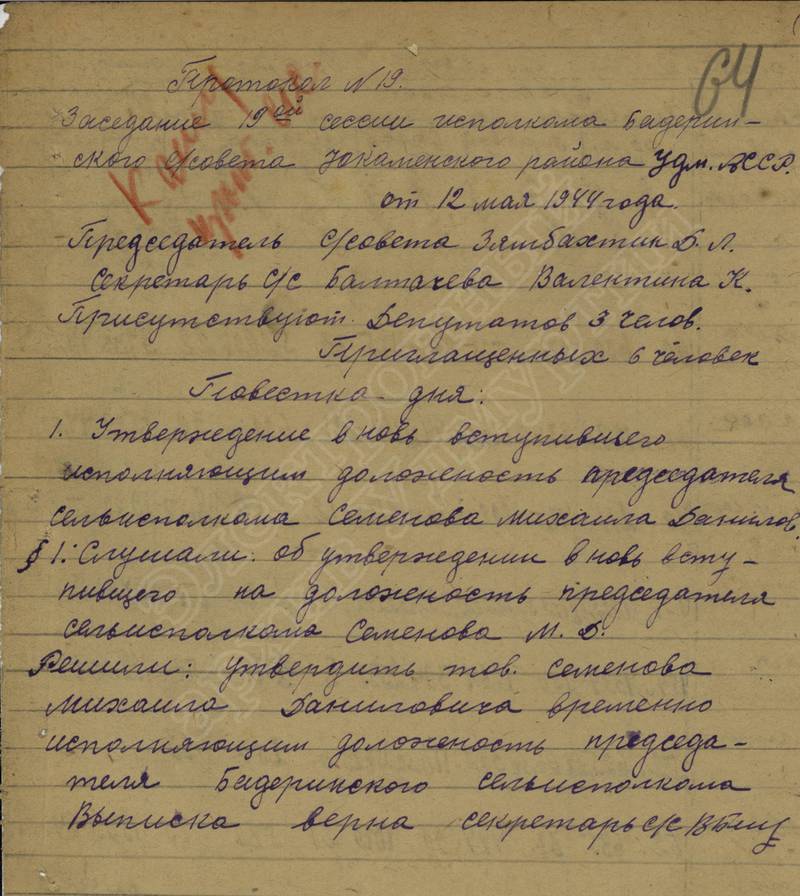 64
Протокол N 19.
Заседание 19ой сессии исполкома Бадерин-
ского с/совета Юкаменского района Удм. АССР.
от 12 мая 1944 года.
Председатель с/совета Зямбахтин Д. Л.
Секретарь с/с Балтачева Валентина К.
Присутствуют Депутатов 3 челов.
Приглащенных 6 человек
Повестка - дня:
1. Утверждение вновь вступившего
исполняющим доложеность председателя
сельисполкома Семенова Михаила Данилов.
§ 1: Слушали: об утверждении вновь всту-
пившего на доложеность председателя
сельисполкома Семенова М. Д.
Решили: утвердить тов. Семенова
Михаила Даниловича временно
исполняющим доложеность председа-
теля Бадеринского сельисполкома
Выписка верна секретарь с/с